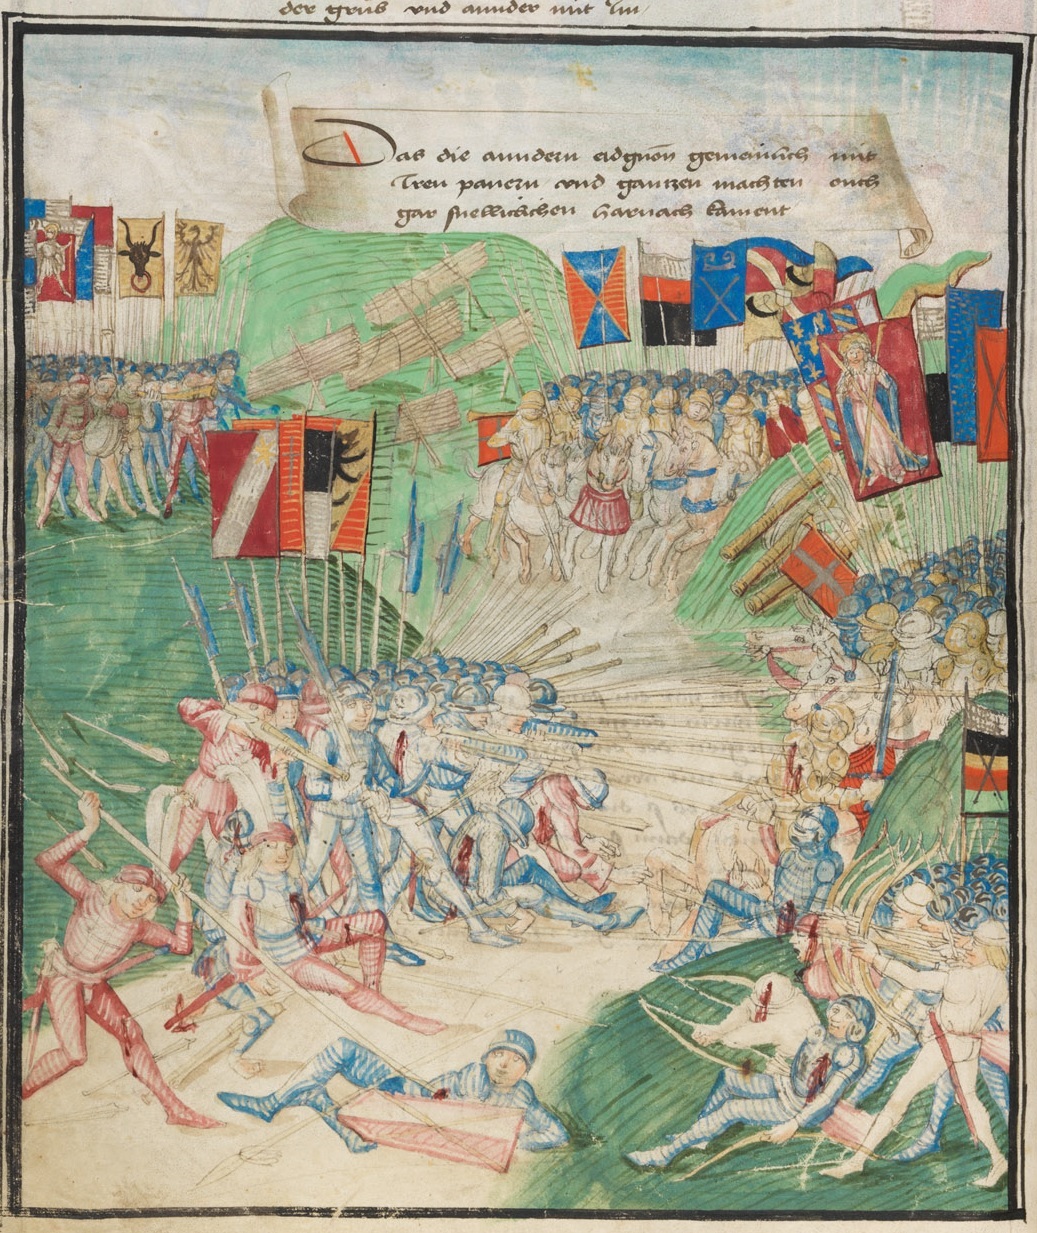 der grůs vnd annder mit Im
Das die anndern eidgnon̄ gemeinlich mit
Iren panern vnd gantzen machten ouch
gar snellicklichen harnach kament